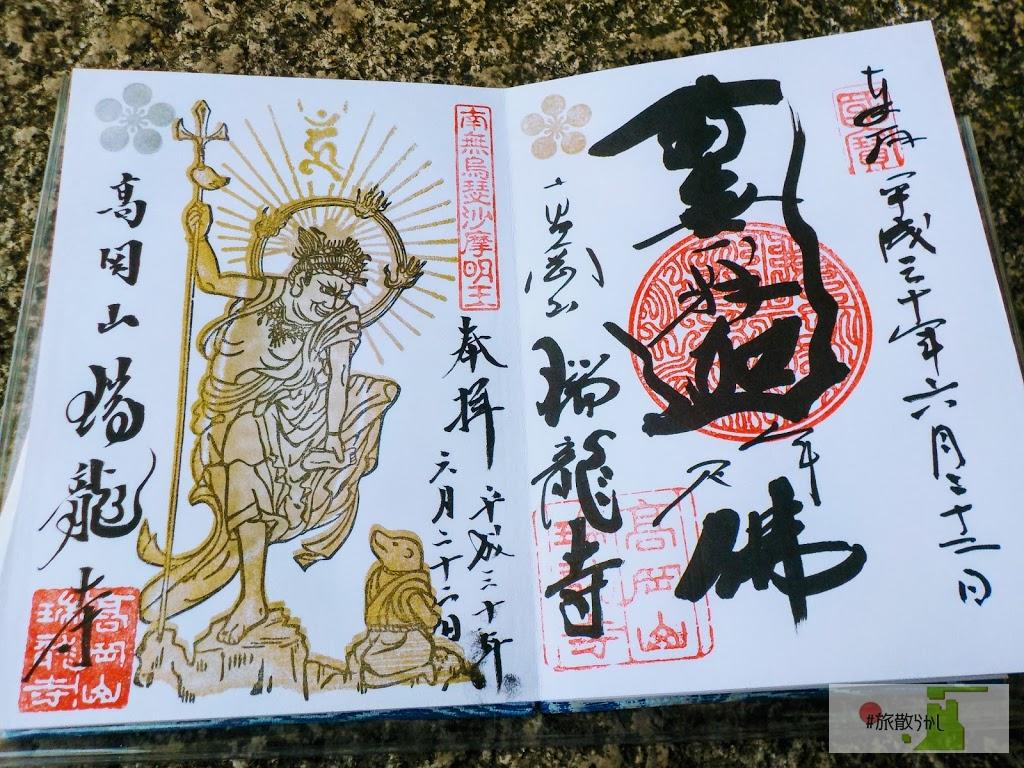 國寶
奉拝
平成三十年六月二十二日
南無釈迦牟尼佛
高岡山
瑞龍寺
高岡山
瑞龍寺
南無烏瑟沙摩明王
奉拝
平成三十年
六月二十二日
高岡山 瑞龍寺
高岡山
瑞龍寺
#旅散らかし